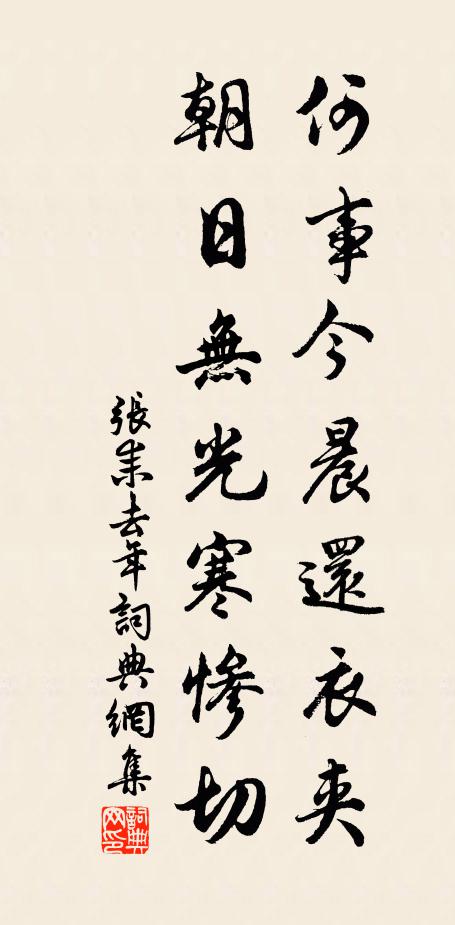 何事今晨還衣夾
朝日無光寒慘切
張耒去年詞典網集
詞典網印